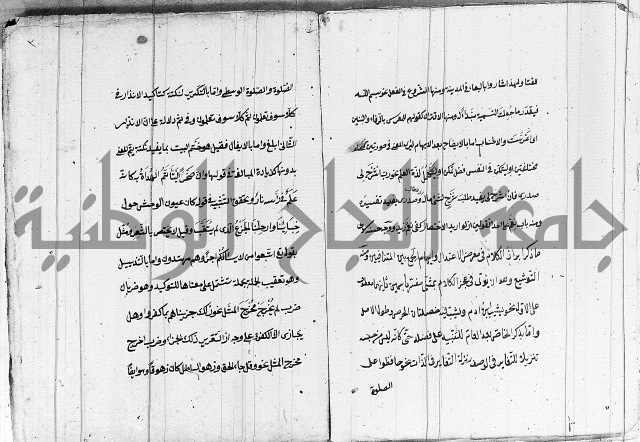 ومنها الشروع في الفعل نحو بسم الله
فيقدر ما جعلت التسمية مبتدأ له ومنها الاقتران كقولهم للمعرس بالرفاء والبنين
اى اعرست والاطناب اما بالايضاح بعد الابهام ليرى المعنى في صورتين
مختلفتين او ليتمكن في النفس فضل تمكن او لتكمل لذة العلم به نحو رب اشرح لى
صدرى فان اشرح لى يفيد طلب شرح لشئ ما له وصدرى يفيد تفسيره
ومنه باب نعم على احد القولين اذ لو اريد الاختصار كفى نعم زيد ووجه حسنه سوى
ما ذكر ابراز الكلام في معرض الاعتدال وايهام الجمع بين المتنافيين ومنه
التوشيع وهو ان يؤتى في عجز الكلام بمثنى مفسر باسمين ثانيهما معطوف
على الاول نحو يشيب ابن ادم ويشب فيه خصلتان الحرص وطول الامل
واما بذكر الخاص بعد العام للتنبيه على فضله حتى كانه ليس من جنسه
تنزيلا للتغاير في الوصف منزلة التغاير في الذات نحو حافظوا على
الصلوة
الصلوة والصلوة الوسطى واما بالتكرير لنكتة كتاكيد الانذار في
كلا سوف تعلمون ثم كلا سوف تعلمون وفي ثم دلالة على ان الانذار
الثانى ابلغ واما بالايغال فقيل هو ختم البيت بما يفيد نكتة يتم المعنى
بدونها كزيادة المبالغة في قولها وان صخرا لتأتم الهداة به كانه
علم في راسه نار وتحقيق التشبيه في قوله كان عيون الوحش حول
خبائنا وارحلنا الجزع الذى لم يثقب وقيل لا يختص بالشعر ومثل
بقوله تع اتبعوا من لا يسألكم اجرا وهم مهتدون واما بالتذييل
وهو تعقيب الجملة بجملة تشتمل على معناها للتوكيد وهو ضربان
ضرب لم يخرج مخرج المثل نحو ذلك جزيناهم بما كفروا وهل
يجازى الا الكفور على وجه وضرب اخرج
مخرج المثل نحو وقل جاء الحق وزهق الباطل ان الباطل كان زهوقا وهو ايضا
جامعة النجاح الوطنية